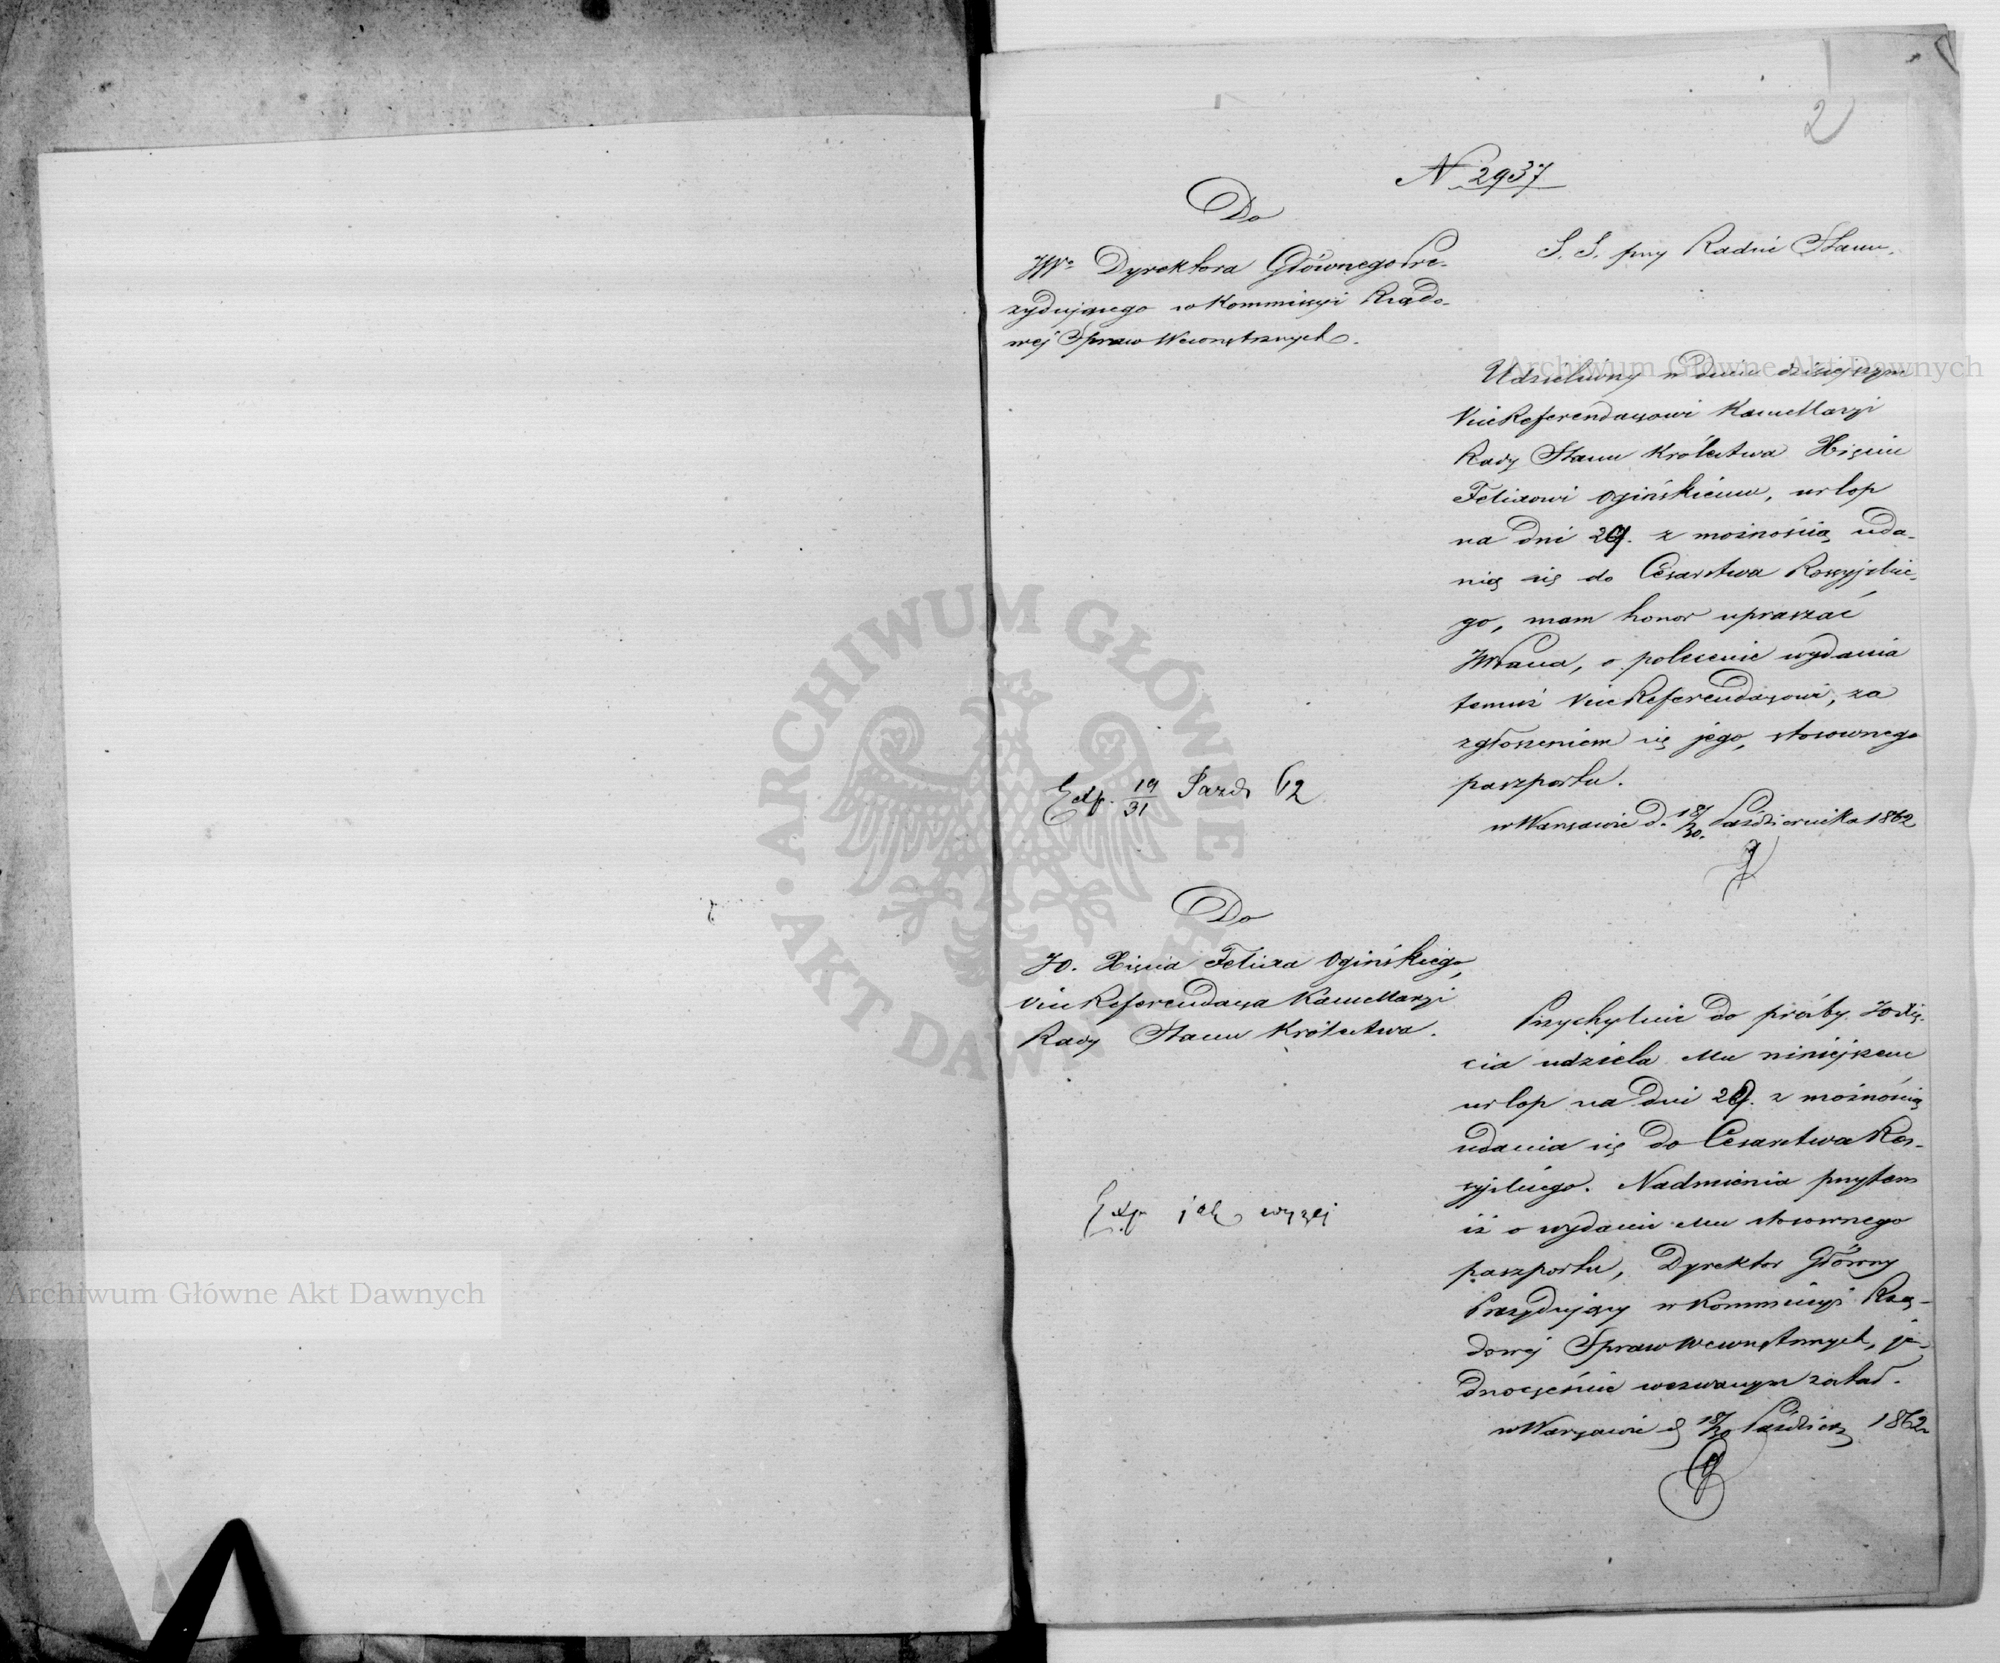 2
N 2937
Do
JWº Dyrektora Głównego Pre-
zydującego w Kommissyi Rządo-
wej Spraw Wewnętrznych.
S. S. przy Radzie Stanu.
Udzieliwszy w dniu dzisiejszym
ViceReferendarzowi Kancellaryi
Rady Stanu Królestwa Xięciu
Felixowi Ogińskiemu, urlop
na dni 29. z możnością uda-
nia się do Cesarstwa Rossyjskie-
go, mam honor upraszać
JWPana, o polecenie wydania
temuż ViceReferendarzowi, za
zgłoszeniem się jego, stosownego
paszportu.
w Warszawie d. 18/30. Października 1862
Exp. 19/31 Paźdz 62
Do
JO. Xięcia Felixa Ogińskiego,
ViceReferendarza Kancellaryi
Rady Stanu Królestwa.
Przychylnie do prośby JO Xię-
cia udziela Mu niniejszem
urlop na dni 29. z możnością
udania się do Cesarstwa Ros-
syjskiego. Nadmienia przytem
iż o wydanie Mu stosownego
paszportu, Dyrektor Główny
Prezydujący w Kommissyi Rzą-
dowej Spraw Wewnętrznych, je-
dnocześnie wezwanym został.
w Warszawie d 18/30 Paździer 1862
Exp jak wyżej
Archiwum Główne Akt Dawnych
Archiwum Główne Akt Dawnych
ARCHIWUM GŁÓWNE AKT DAWNYCH